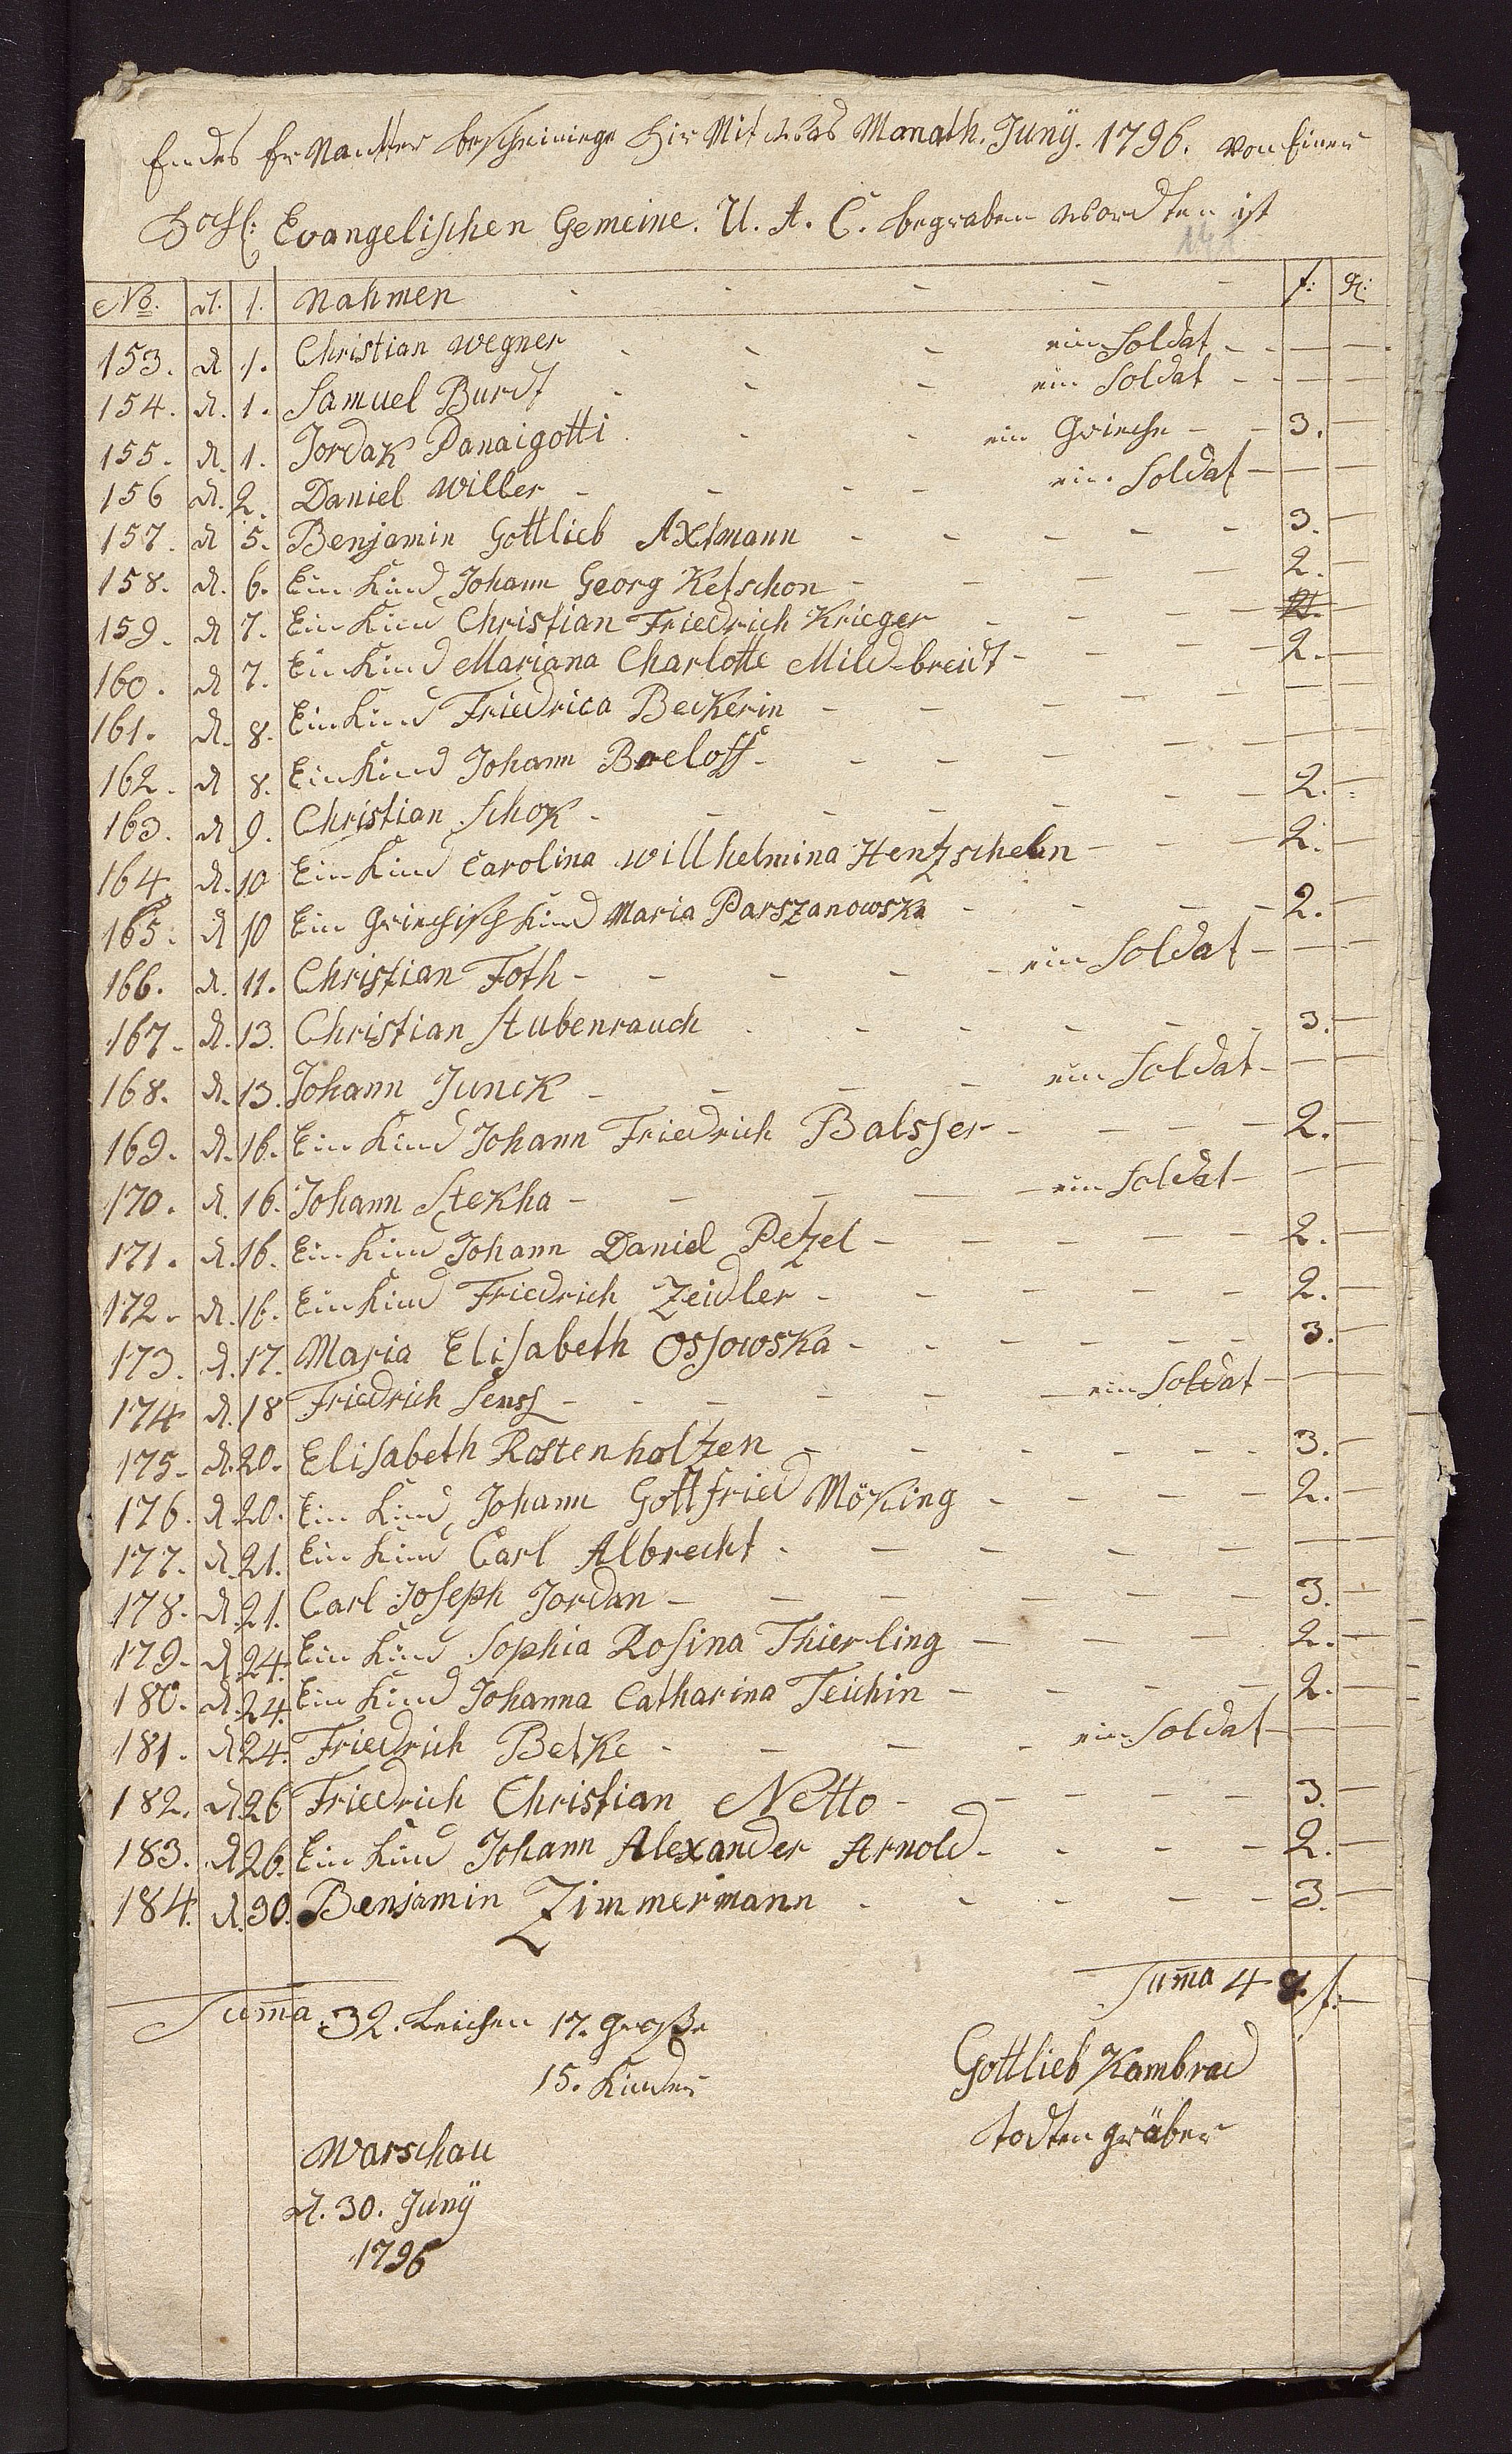 Endes br Nantter bescheinige Hir Mit was Monath. Junÿ. 1796. von Einer
Hochl: Evangelischen Gemeine. U. A. C. begraben wordten ist
No. d. 1. Nahmen f: gr:
153. d 1. Christian Wegner - - - ein Soldat - - -
154. d. 1. Samuel Burdt - - - ein Soldat - - -
155. d. 1. Jordak Panaigotti - - ein Grieche - - 3. -
156 d. 2. Daniel Willer - - - - ein Soldat - - -
157. d 5. Benjamin Gottlieb Axtmann - - - - - 3. -
158. d. 6. Ein Kind Johann Georg Ketschon - - - - 2. -
159. d 7. Ein Kind Christian Friedrich Krieger - - - -
160. d 7. Ein Kind Mariana Charlotte Mild-breidt - - - - 2. -
161. d. 8. Ein Kind Friedrica Beckerin - - - - - - -
162. d 8. Ein Kind Johann Breloff - - - - - - - -
163. d 9. Christian Schok - - - - - - - 2. -
164. d. 10 Ein Kind Carolina Willhelmina Hentzscheln - - - 2. -
165. d 10 Ein Griechisch Kind Maria Parszanowska - - - - 2. -
166. d. 11. Christian Foth - - - - - ein Soldat - - -
167. d. 13. Christian Stubenrauch - - - - - - 3. -
168. d. 13. Johann Junck - - - - ein Soldat - - -
169. d. 16. Ein Kind Johann Friedrich Balsser - - - - 2. -
170. d. 16. Johann Stekha - - - - - ein Soldat - - -
171. d. 16. Ein Kind Johann Daniel Petzel - - - - - 2. -
172. d. 16. Ein Kind Friedrich Zeidler - - - - - 2. -
173. d. 17. Maria Elisabeth Ossowska - - - - - 3. -
174 d. 18 Friedrich Senss - - - - - - ein Soldat - - -
175. d. 20. Elisabeth Rostenholtzen - - - - - - 3. -
176. d. 20. Ein Kind Johann Gottfried Möking - - - - 2. -
177. d. 21. Ein Kind Carl Albrecht - - - - - - -
178. d. 21. Carl Joseph Jordan - - - - - - 3. -
179. d. 24. Ein Kind Sophia Rosina Thierling - - - 2. -
180. d. 24. Ein Kind Johanna Catharina Teichin - - - - 2. -
181. d 24. Friedrich Betke - - - - ein Soldat - - -
182. d 26 Friedrich Christian Netto - - - - - 3. -
183. d 26. Ein Kind Johann Alexander Arnold - - - - 2. -
184. d. 30. Benjamin Zimmermann - - - - - 3. -
Suma 4 f. -
Suma 32. Leichen 17. große
15. Kinder
Gottlieb Kambrad
todten gräber
Warschau
d. 30. Junÿ
1796